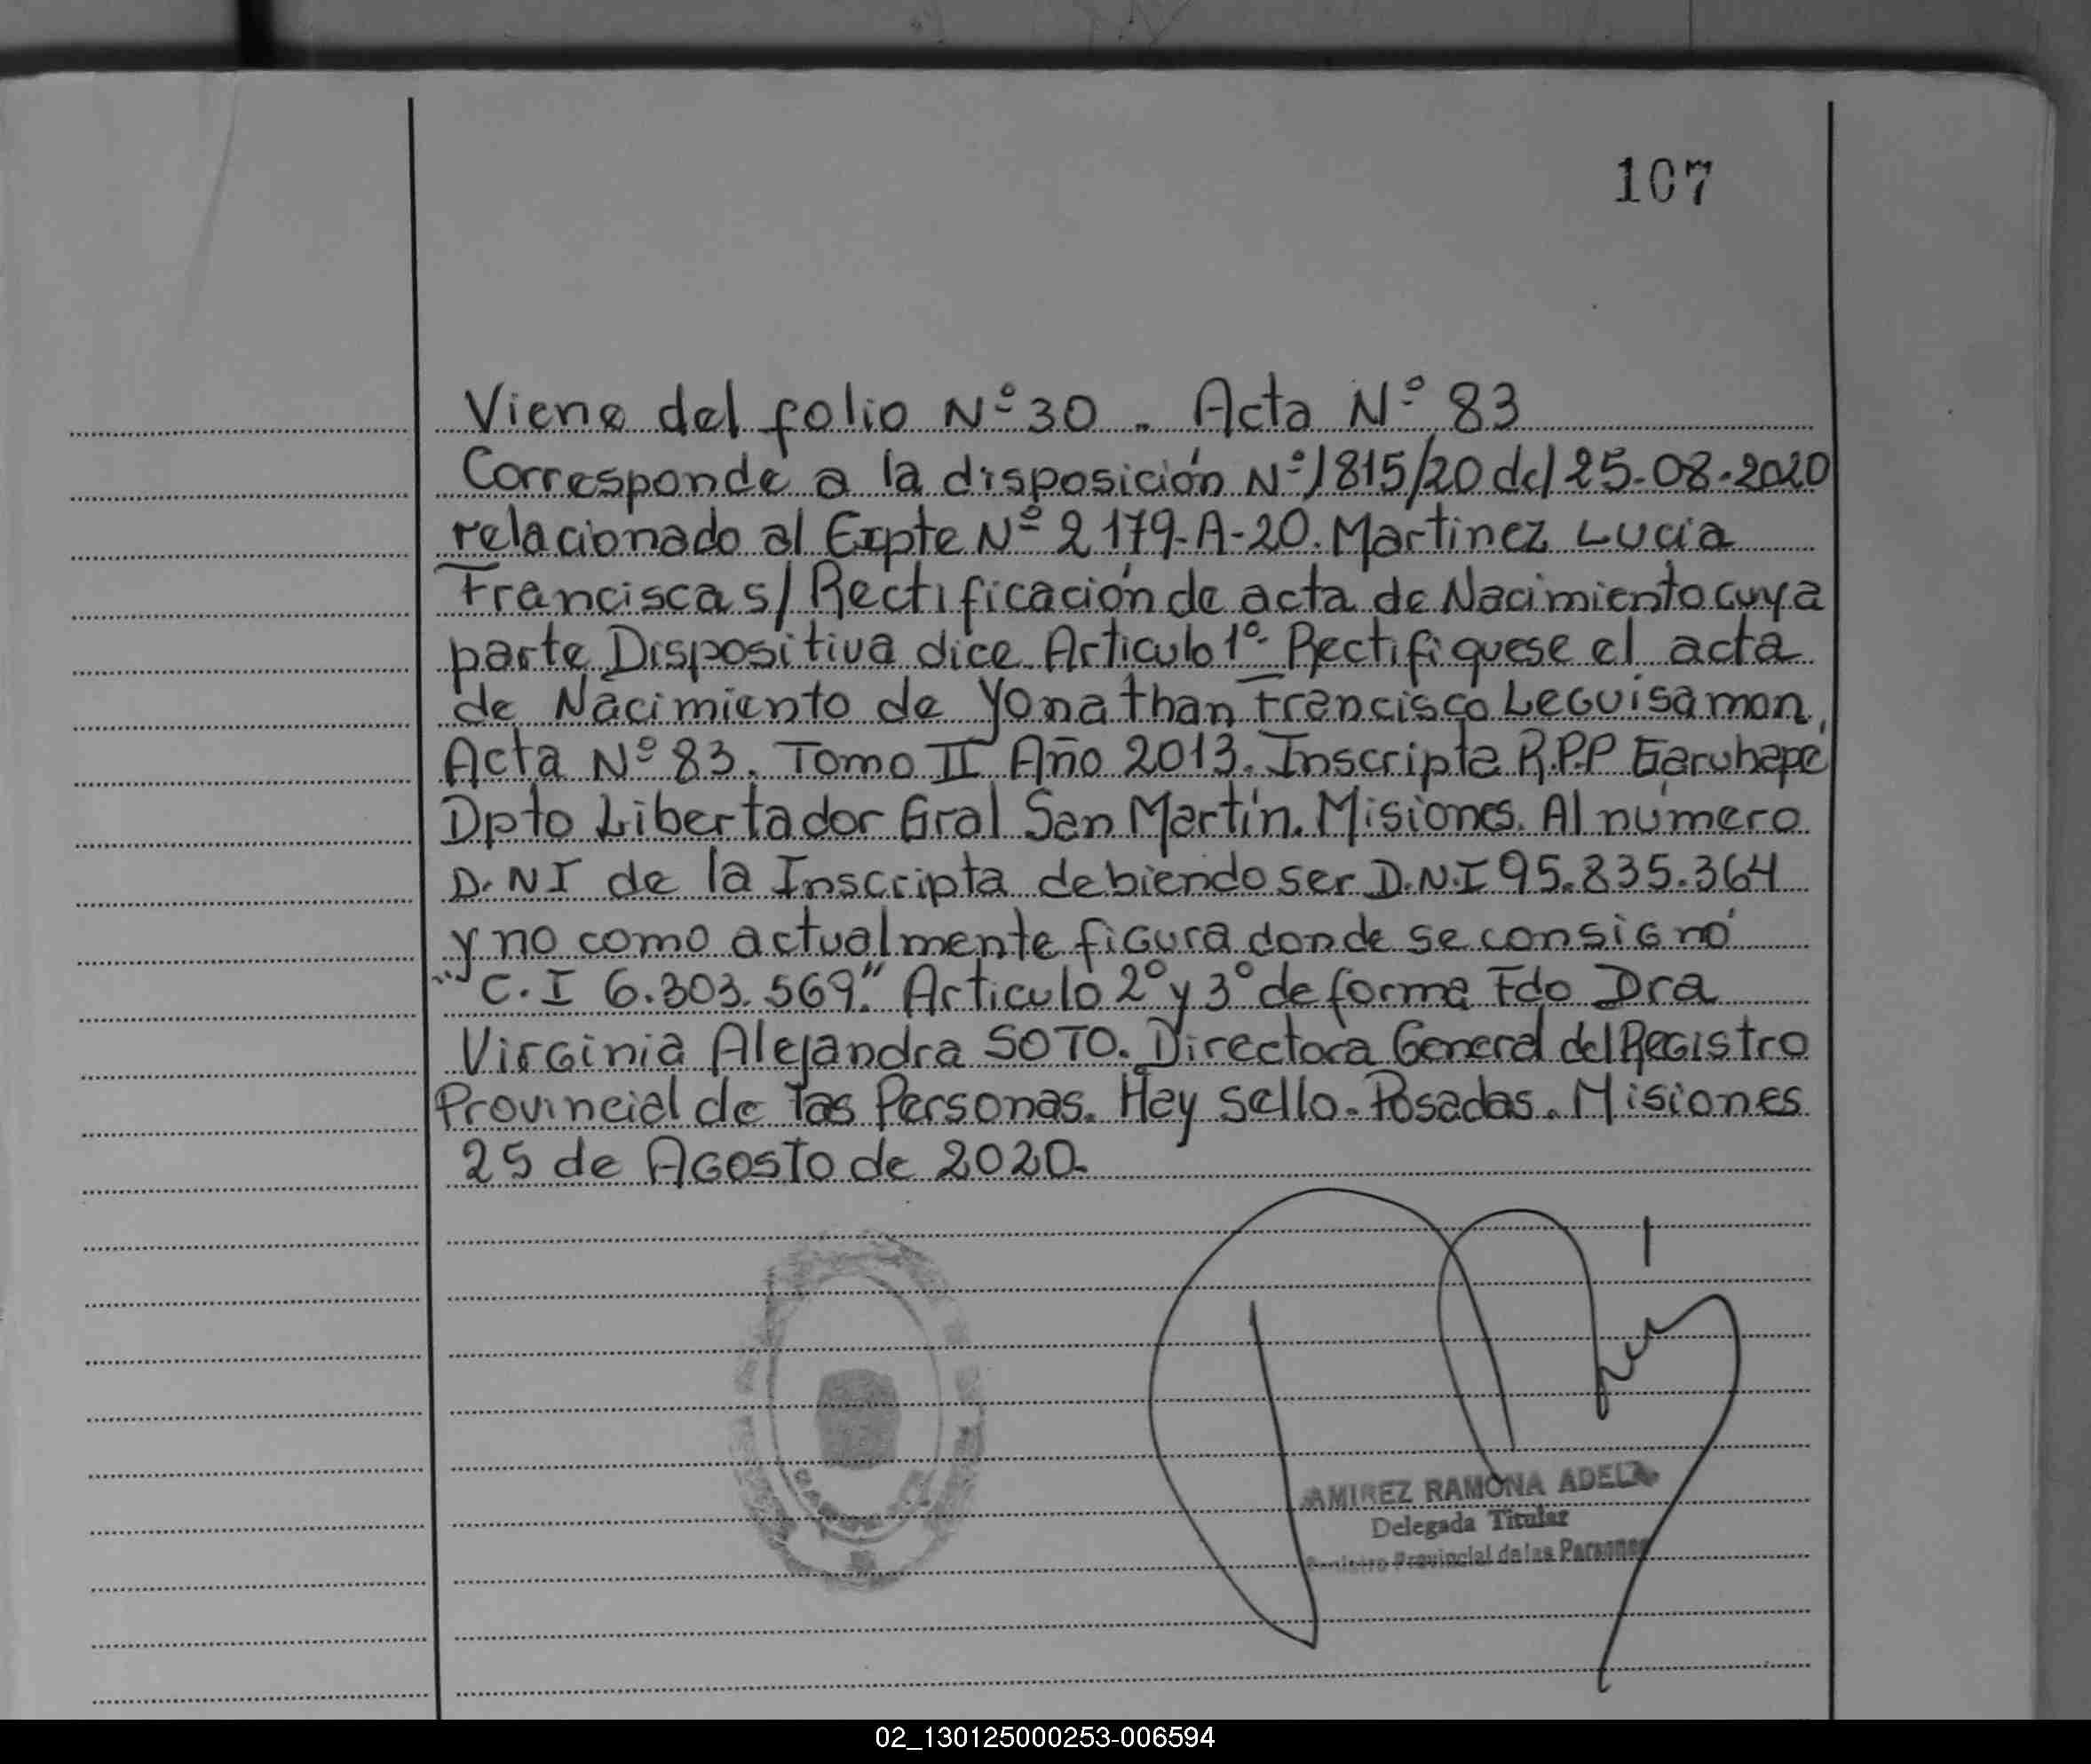 107
Viene del folio Nº 30. Acta Nº 83
Corresponde a la disposición Nº 1815/20 del 25-08-2020
relacionado al Expte Nº 2179-A-20. Martinez Lucia
Francisca s/ Rectificación de acta de Nacimiento cuya
parte Dispositiva dice Articulo 1º- Rectifiquese el acta
de Nacimiento de Yonathan Francisco Leguisamon,
Acta Nº 83. Tomo II Año 2013. Inscripta R.P.P Garuhapé
Dpto Libertador Gral San Martín. Misiones. Al número
D.NI de la Inscripta debiendo ser D.N.I 95.835.364
y no como actualmente figura donde se consignó
"C.I 6.303.569." Articulo 2º y 3º de forma Fdo Dra
Virginia Alejandra SOTO. Directora General del Registro
Provincial de las Personas. Hay sello. Posadas. Misiones
25 de Agosto de 2020.
AMIREZ RAMONA ADELA
Delegada Titular
Provincial de las Personas
02_130125000253-006594